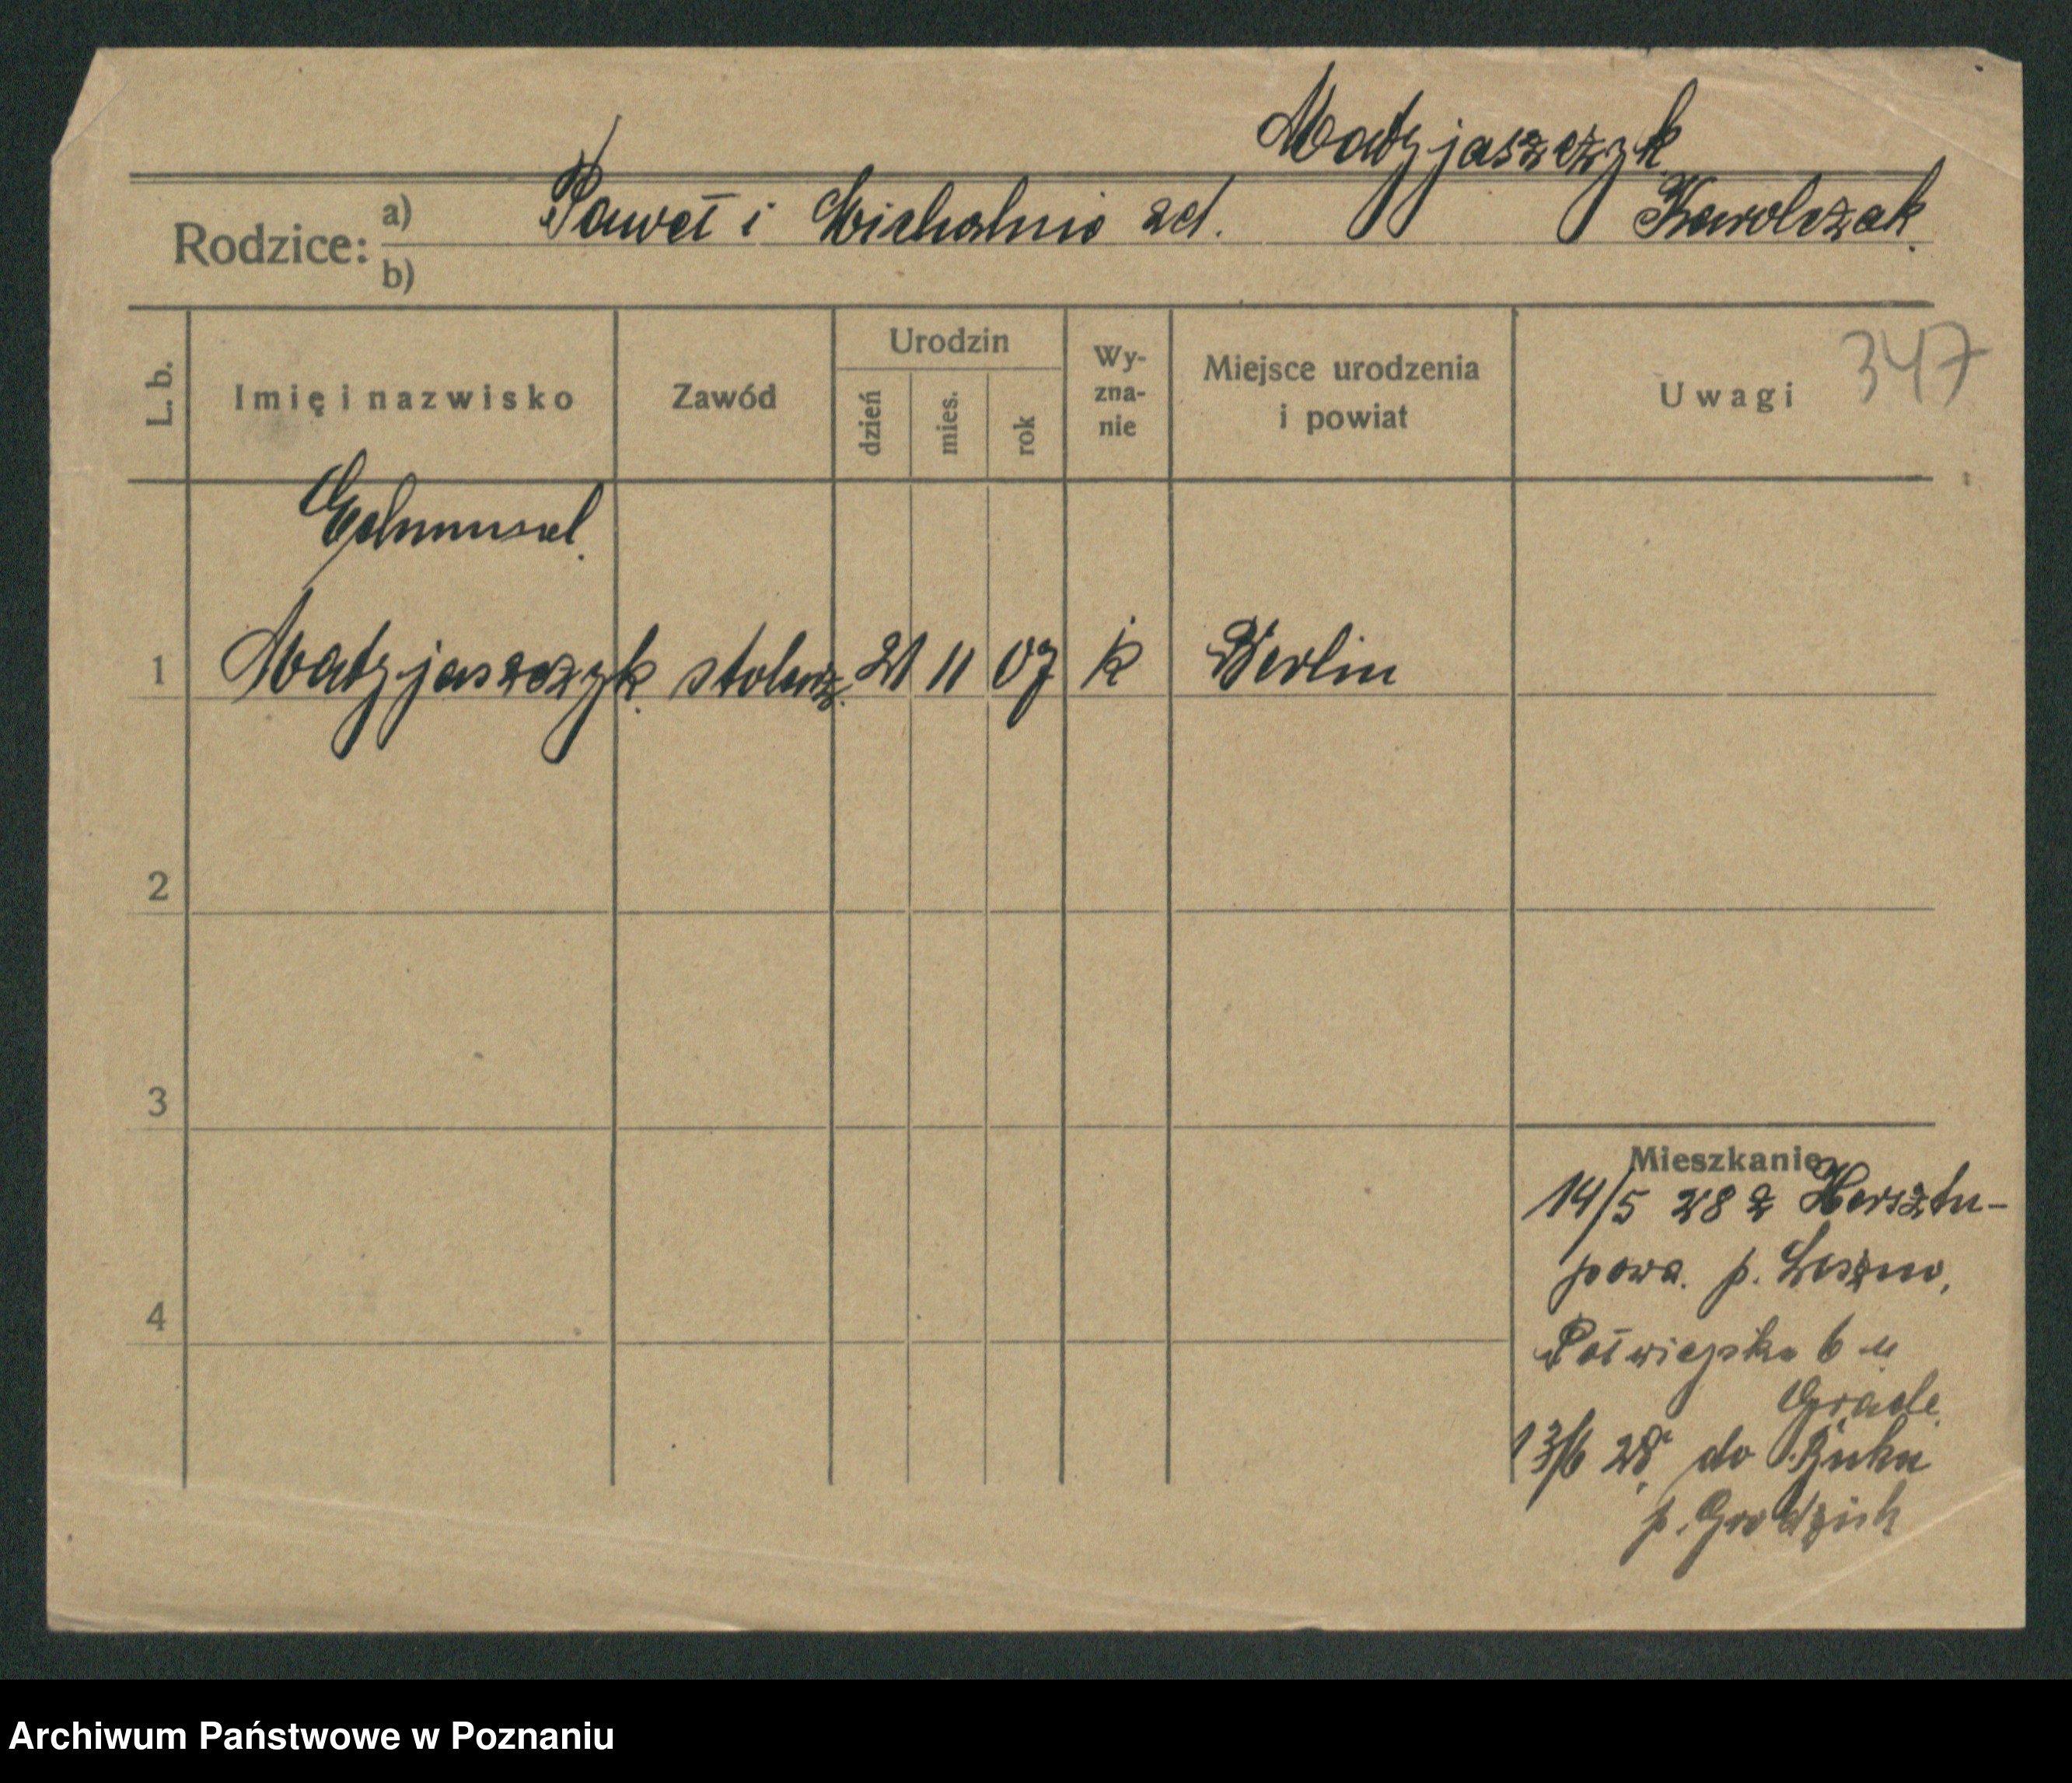 Matyjaszczyk
Rodzice: a) Paweł i Michalina zd. Karolczak.
b)
L. b. Imię i nazwisko Zawód Urodzin dzień mies. rok Wy-zna-nie Miejsce urodzenia i powiat Uwagi 347
Edmund.
1 Matyjaszczyk. stolarz. 21 11 07 k Berlin
2
3
Mieszkanie
14/5 28 z Hersztu-
powa. p. Leszno,
4
Półwiejska 6 u
13/6 28 do Buku
p. Grodzisk
Archiwum Państwowe w Poznaniu